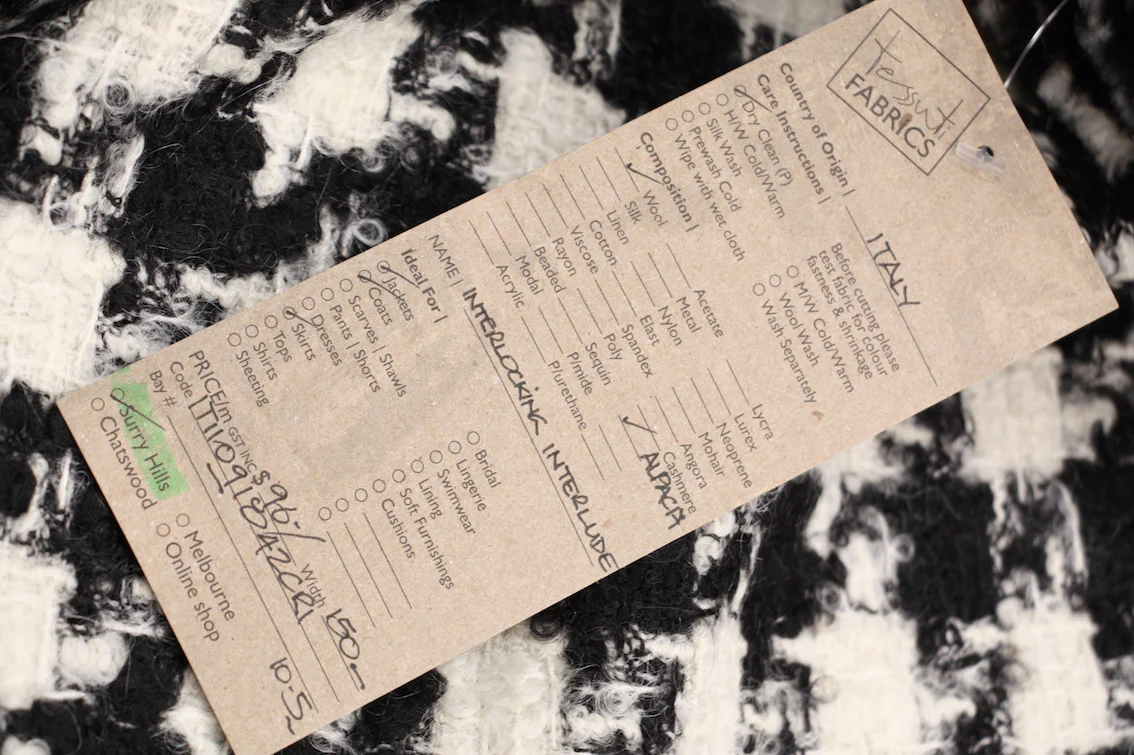 Tessuti
FABRICS
Country of Origin | ITALY
Care Instructions |
Dry Clean (P)
H/W Cold/Warm
Silk Wash
Prewash Cold
Wipe with wet cloth
Before cutting please
test fabric for colour
fastness & shrinkage
M/W Cold/Warm
Wool Wash
Wash Separately
Composition |
Wool
Silk
Linen
Cotton
Viscose
Rayon
Beaded
Modal
Acrylic
Acetate
Metal
Nylon
Elast
Spandex
Poly
Sequin
P/mide
P/urethane
Lycra
Lurex
Neoprene
Mohair
Angora
Cashmere
ALPACA
NAME | INTERLOCKING INTERLUDE
Ideal For |
Jackets
Coats
Scarves | Shawls
Pants | Shorts
Dresses
Skirts
Tops
Shirts
Sheeting
Bridal
Lingerie
Swimwear
Lining
Soft Furnishings
Cushions
PRICE/m GST INC $96/ Width 150
Code
Bay # 10:5
Surry Hills
Chatswood
Melbourne
Online shop